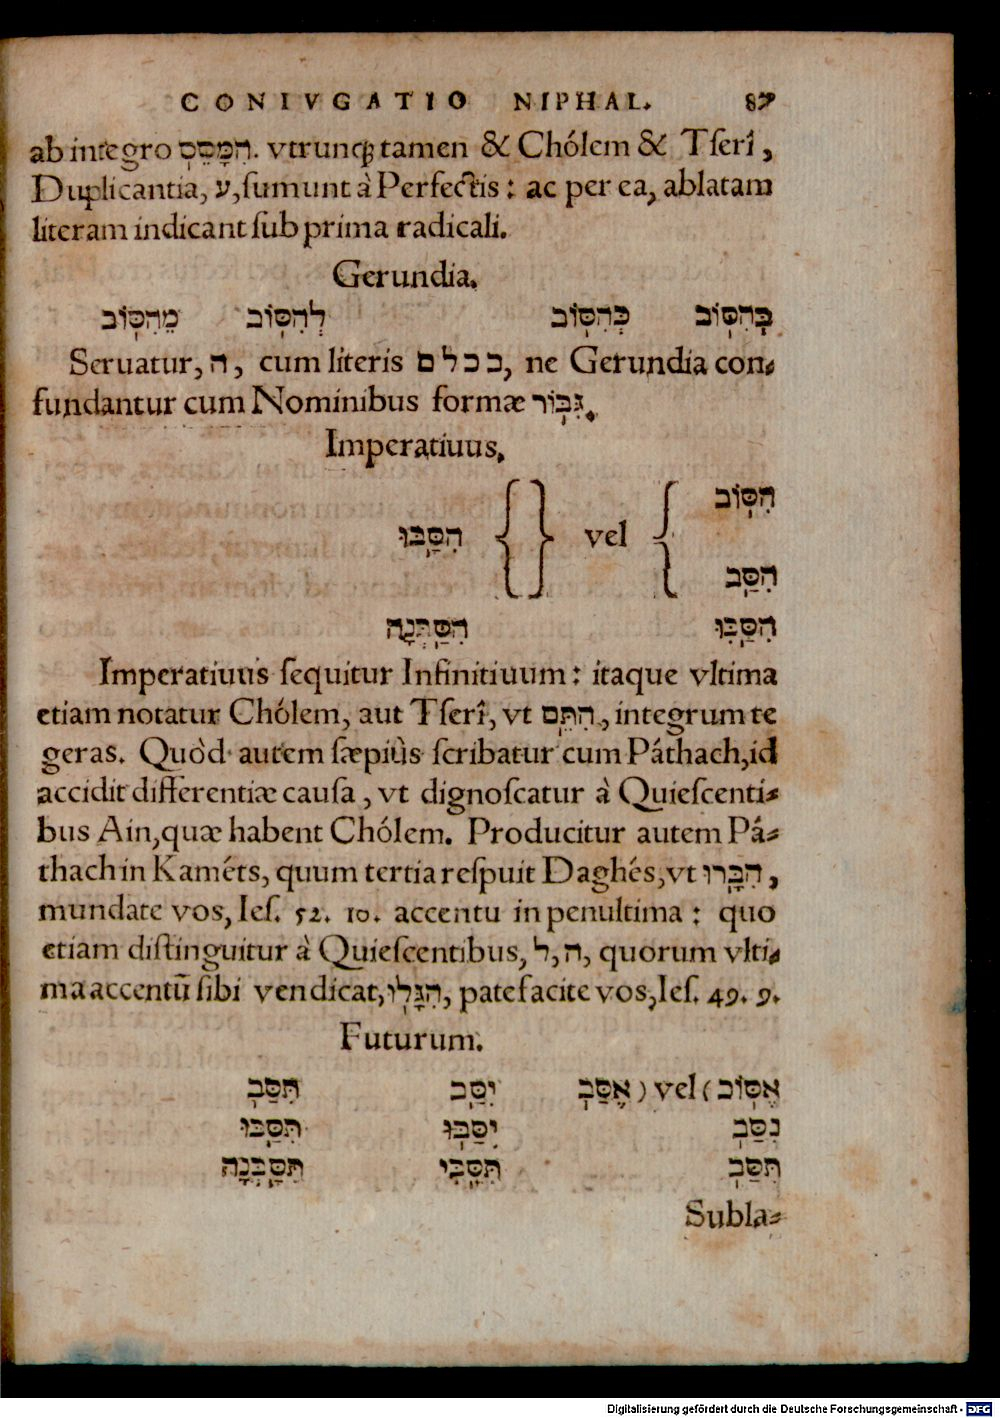 CONIVGATIO NIPHAL. 87
ab integro הִמָּסֵס. vtrunq; tamen & Chólem & Tserî,
Duplicantia, ע, sumunt à Perfectis: ac per ea, ablatam
literam indicant sub prima radicali.
Gerundia.
בְּהִסּוֹב כְּהִסּוֹב לְהִסּוֹב מֵהִסּוֹב
Seruatur, ה, cum literis בכלם, ne Gerundia con-
fundantur cum Nominibus formæ גִּבּוֹר.
Imperatiuus.
הִסּוֹב
vel הִסַּבּוּ
הִסַּב
הִסַּבִּי הִסַּבְנָה
Imperatiuus sequitur Infinitiuum: itaque vltima
etiam notatur Chólem, aut Tserî, vt הִתֵּם, integrum te
geras. Quòd autem sæpiùs scribatur cum Páthach, id
accidit differentiæ causa, vt dignoscatur à Quiescenti-
bus Ain, quæ habent Chólem. Producitur autem Pá-
thach in Kaméts, quum tertia respuit Daghés, vt הִבָּרוּ,
mundate vos, Ies. 52. 10. accentu in penultima: quo
etiam distinguitur à Quiescentibus, ל, ה, quorum vlti-
ma accentũ sibi vendicat, הִגָּלוּ, patefacite vos, Ies. 49. 9.
Futurum.
אֶסּוֹב (vel) אֶסַּב יִסַּב תִּסַּב
נִסַּב יִסַּבּוּ תִּסַּבּוּ
תִּסַּב תִּסַּבִּי תִּסַּבְנָה
Subla-